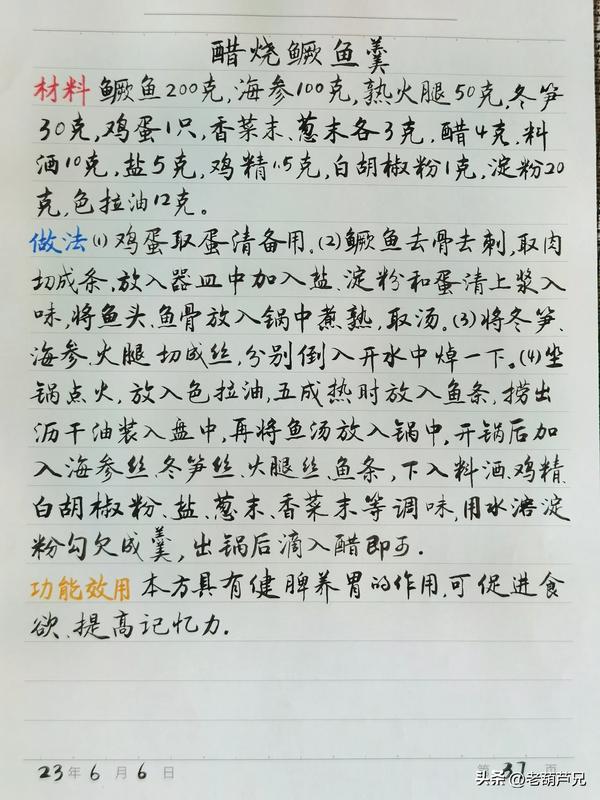 醋烧鳜鱼羹
材料 鳜鱼200克,海参100克,熟火腿50克,冬笋
30克,鸡蛋1只,香菜末、葱末各3克,醋4克,料
酒10克,盐5克,鸡精1.5克,白胡椒粉1克,淀粉20
克,色拉油12克。
做法(1)鸡蛋取蛋清备用.(2)鳜鱼去骨去刺,取肉
切成条,放入器皿中加入盐、淀粉和蛋清上浆入
味,将鱼头、鱼骨放入锅中煮熟,取汤。(3)将冬笋、
海参、火腿切成丝,分别倒入开水中焯一下。(4)坐
锅点火,放入色拉油,五成热时放入鱼条,捞出
沥干油装入盘中,再将鱼汤放入锅中,开锅后加
入海参丝、冬笋丝、火腿丝、鱼条,下入料酒、鸡精、
白胡椒粉、盐、葱末、香菜末等调味,用水溶淀
粉勾欠成羹,出锅后滴入醋即可.
功能效用 本方具有健脾养胃的作用,可促进食
欲、提高记忆力.
23年6月6日 第37页
头条@老葫芦兄